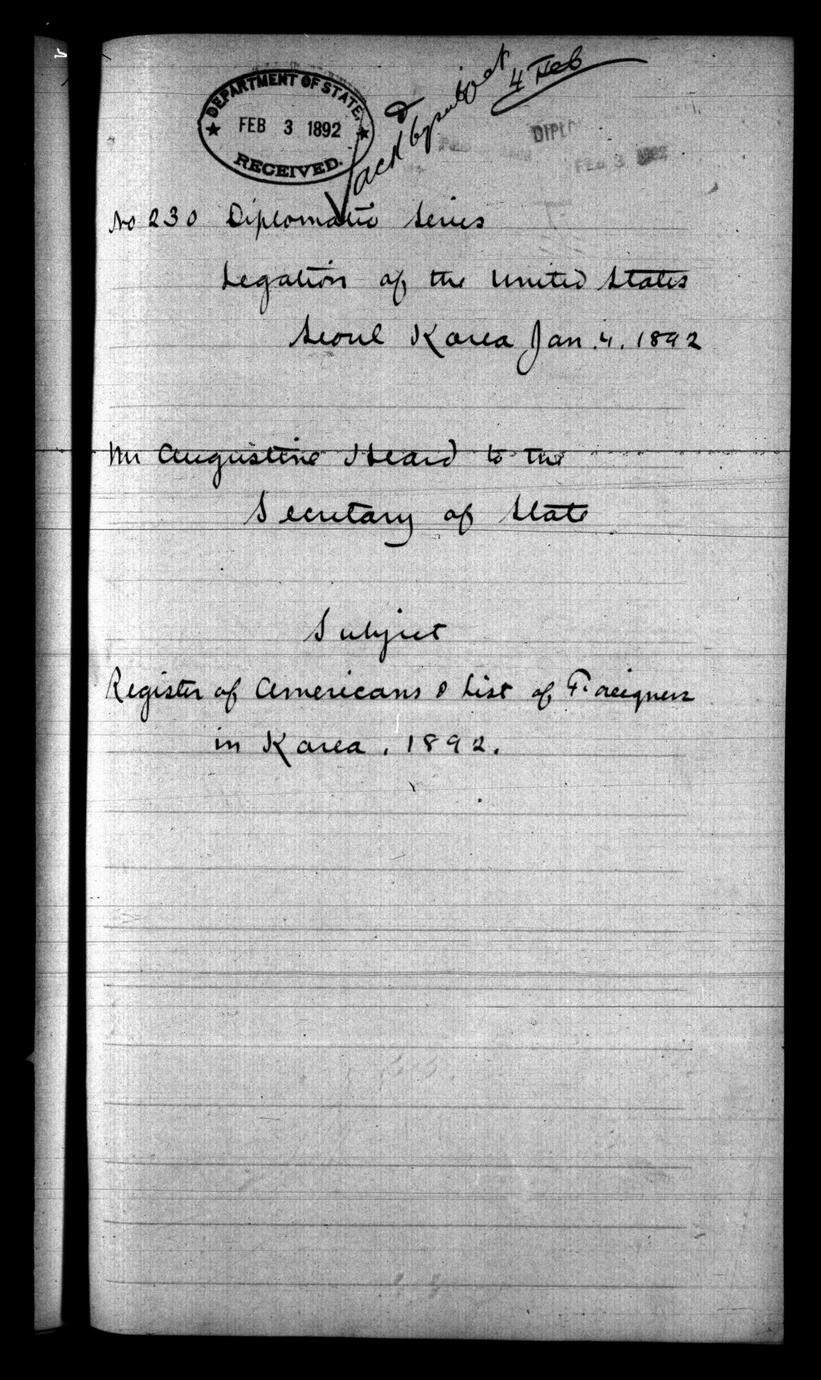 DEPARTMENT OF STATE.
FEB 3 1892
RECEIVED.
ack by subject
4 Feb
DIPLO
FEB 3 1892
No 230 Diplomatic Series
Legation of the United States
Seoul Korea Jan. 4. 1892
Mr Augustine Heard to the
Secretary of State
Subject
Register of Americans & List of Foreigners
in Korea, 1892.